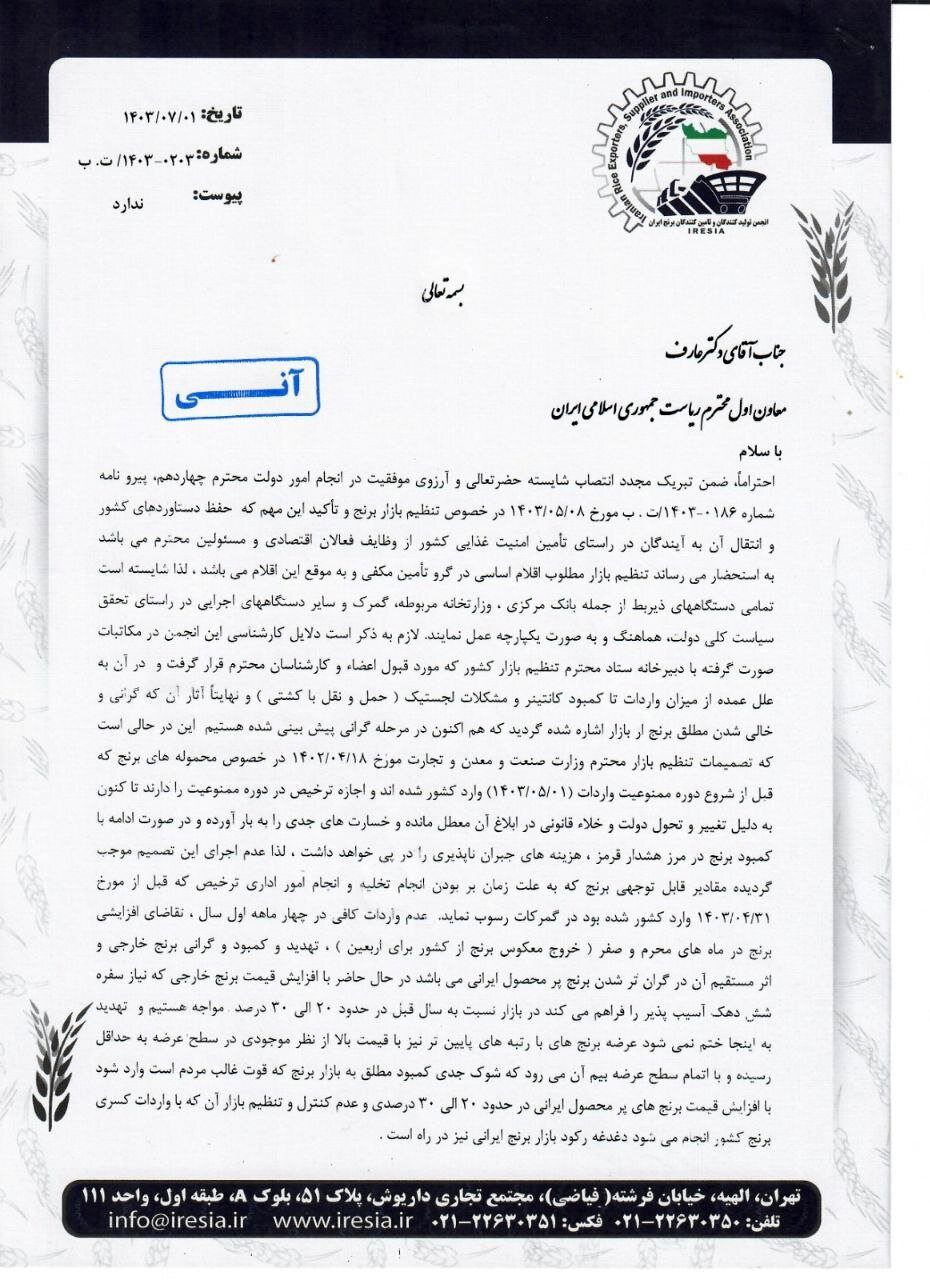 تاریخ: ۱۴۰۳/۰۷/۰۱
شماره: ۱۴۰۳-۰۲۰۳/ت. ب
پیوست: ندارد
Iranian Rice Exporters, Supplier and Importers Association
انجمن تولید کنندگان و تامین کنندگان برنج ایران
IRESIA
بسمه تعالی
جناب آقای دکتر عارف
معاون اول محترم ریاست جمهوری اسلامی ایران
آنـــی
با سلام
احتراماً، ضمن تبریک مجدد انتصاب شایسته حضرتعالی و آرزوی موفقیت در انجام امور دولت محترم چهاردهم، پیرو نامه
شماره ۰۱۸۶-۱۴۰۳/ت . ب مورخ ۱۴۰۳/۰۵/۰۸ در خصوص تنظیم بازار برنج و تأکید این مهم که حفظ دستاوردهای کشور
و انتقال آن به آیندگان در راستای تأمین امنیت غذایی کشور از وظایف فعالان اقتصادی و مسئولین محترم می باشد
به استحضار می رساند تنظیم بازار مطلوب اقلام اساسی در گرو تأمین مکفی و به موقع این اقلام می باشد ، لذا شایسته است
تمامی دستگاههای ذیربط از جمله بانک مرکزی ، وزارتخانه مربوطه، گمرک و سایر دستگاههای اجرایی در راستای تحقق
سیاست کلی دولت، هماهنگ و به صورت یکپارچه عمل نمایند. لازم به ذکر است دلایل کارشناسی این انجمن در مکاتبات
صورت گرفته با دبیرخانه ستاد محترم تنظیم بازار کشور که مورد قبول اعضاء و کارشناسان محترم قرار گرفت و در آن به
علل عمده از میزان واردات تا کمبود کانتینر و مشکلات لجستیک ( حمل و نقل با کشتی ) و نهایتاً آثار آن که گرانی و
خالی شدن مطلق برنج ار بازار اشاره شده گردید که هم اکنون در مرحله گرانی پیش بینی شده هستیم این در حالی است
که تصمیمات تنظیم بازار محترم وزارت صنعت و معدن و تجارت مورخ ۱۴۰۲/۰۴/۱۸ در خصوص محموله های برنج که
قبل از شروع دوره ممنوعیت واردات (۱۴۰۳/۰۵/۰۱) وارد کشور شده اند و اجازه ترخیص در دوره ممنوعیت را دارند تا کنون
به دلیل تغییر و تحول دولت و خلاء قانونی در ابلاغ آن معطل مانده و خسارت های جدی را به بار آورده و در صورت ادامه با
کمبود برنج در مرز هشدار قرمز ، هزینه های جبران ناپذیری را در پی خواهد داشت ، لذا عدم اجرای این تصمیم موجب
گردیده مقادیر قابل توجهی برنج که به علت زمان بر بودن انجام تخلیه و انجام امور اداری ترخیص که قبل از مورخ
۱۴۰۳/۰۴/۳۱ وارد کشور شده بود در گمرکات رسوب نماید. عدم واردات کافی در چهار ماهه اول سال ، تقاضای افزایشی
برنج در ماه های محرم و صفر ( خروج معکوس برنج از کشور برای اربعین ) ، تهدید و کمبود و گرانی برنج خارجی و
اثر مستقیم آن در گران تر شدن برنج پر محصول ایرانی می باشد در حال حاضر با افزایش قیمت برنج خارجی که نیاز سفره
شش دهک آسیب پذیر را فراهم می کند در بازار نسبت به سال قبل در حدود ۲۰ الی ۳۰ درصد مواجه هستیم و تهدید
به اینجا ختم نمی شود عرضه برنج های با رتبه های پایین تر نیز با قیمت بالا از نظر موجودی در سطح عرضه به حداقل
رسیده و با اتمام سطح عرضه بیم آن می رود که شوک جدی کمبود مطلق به بازار برنج که قوت غالب مردم است وارد شود
با افزایش قیمت برنج های پر محصول ایرانی در حدود ۲۰ الی ۳۰ درصدی و عدم کنترل و تنظیم بازار آن که با واردات کسری
برنج کشور انجام می شود دغدغه رکود بازار برنج ایرانی نیز در راه است .
تهران، الهیه، خیابان فرشته( فیاضی)، مجتمع تجاری داریوش، پلاک ۵۱، بلوک A، طبقه اول، واحد ۱۱۱
تلفن: ۲۲۶۳۰۳۵۰-۰۲۱ فکس: ۲۲۶۳۰۳۵۱-۰۲۱ www.iresia.ir info@iresia.ir